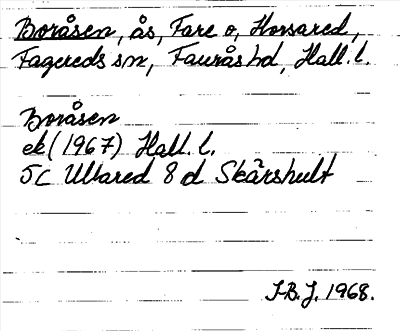 Boråsen, ås, Fare o, Horsared,
Fagereds sn, Faurås hd, Hall. l.
Boråsen
ek (1967) Hall. l.
5c Ullared 8 d Skärshult
J-B.J. 1968.